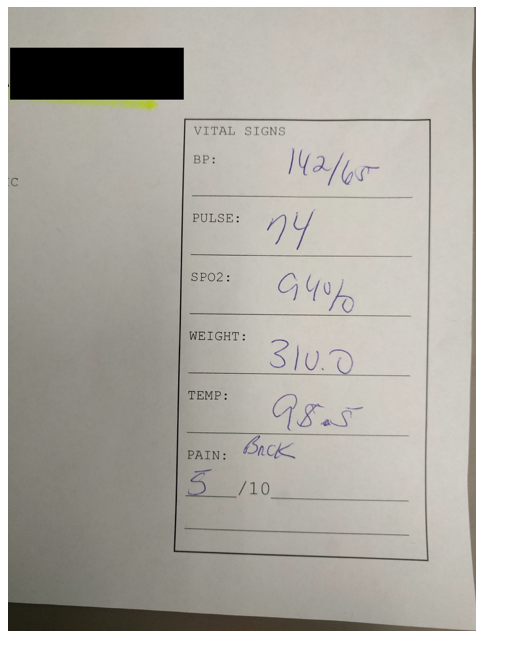 VITAL SIGNS
BP: 142/65
C
PULSE: 74
SPO2: 94%
WEIGHT: 310.0
TEMP: 98.5
PAIN: Back
5/10